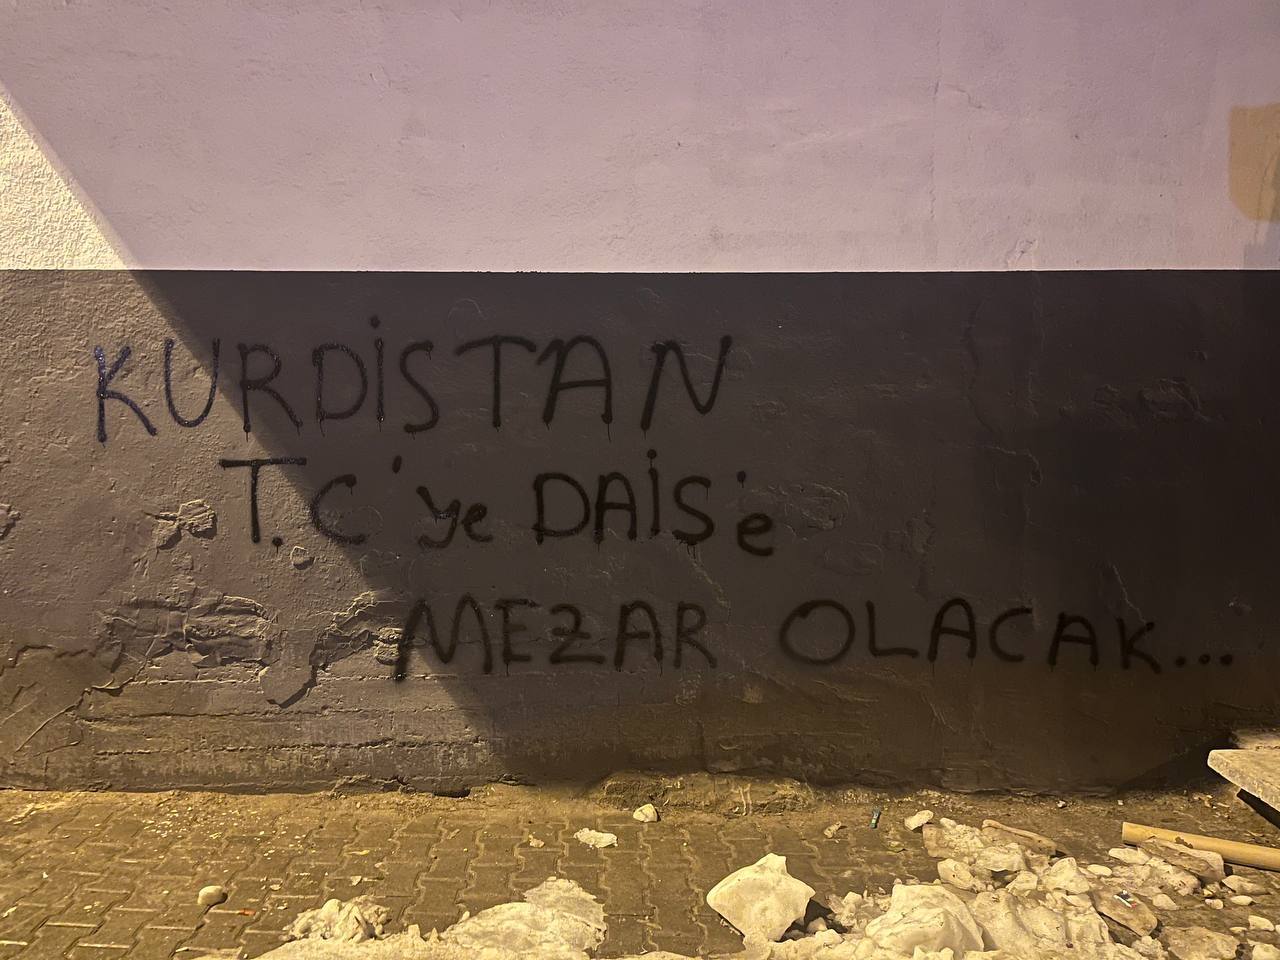 KURDİSTAN
T.C'ye DAİŞ'e
MEZAR OLACAK...